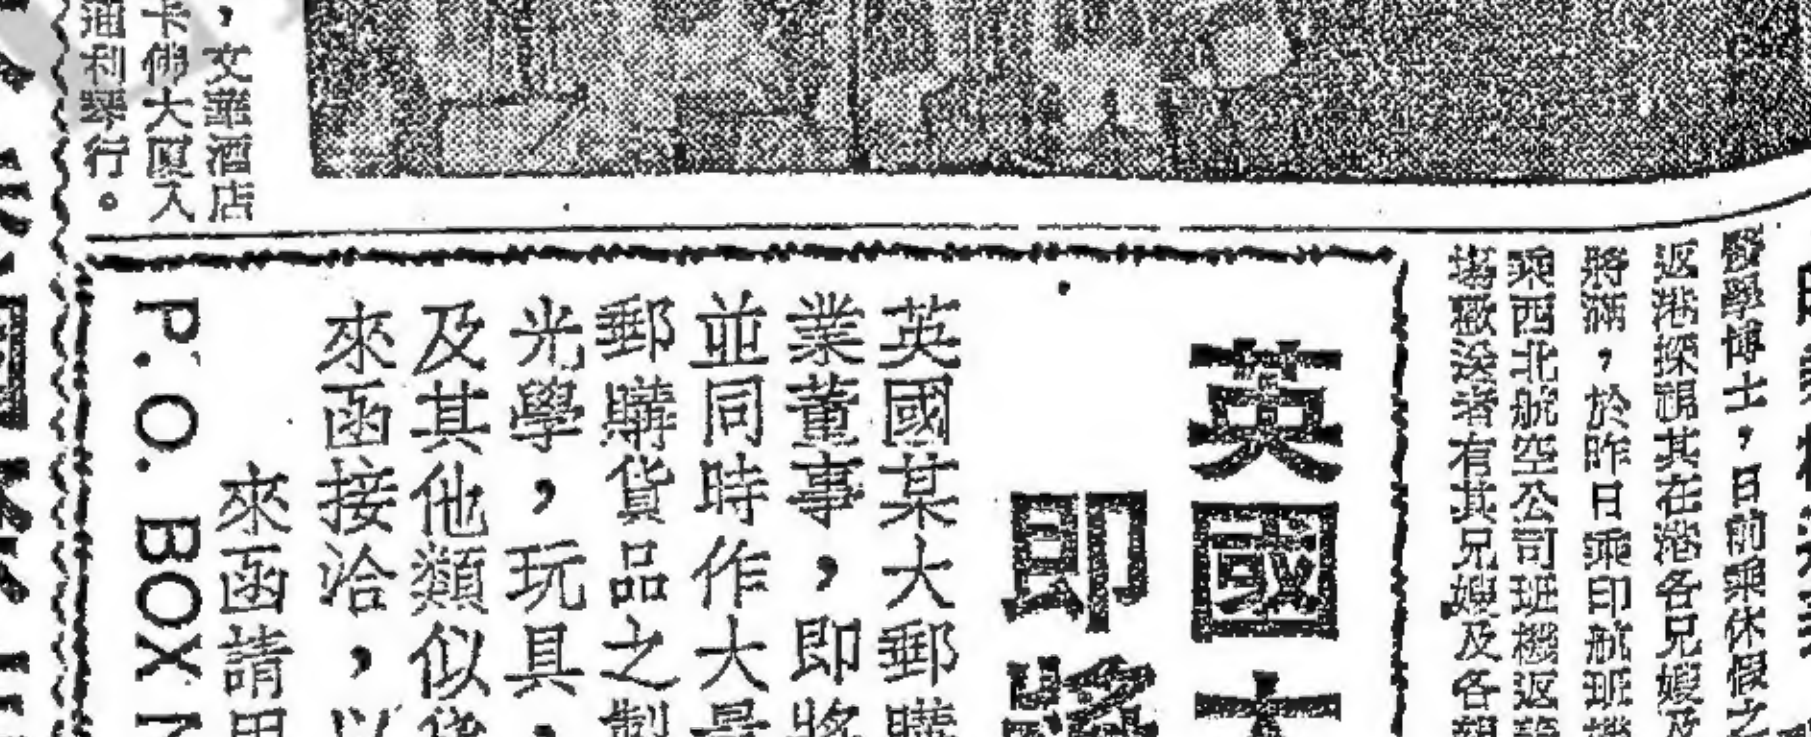 醫學博士，日前乘休假之
返港探視其在港各兄嫂及
將滿，於昨日乘印航班機
乘西北航空公司班機返
場歡送者有其兄嫂及各親
英國大
即將
英國某大郵購
業董事，即將
並同時作大量
郵購貨品之製
光學，玩具，
及其他類似
來函接洽，以
來函請用
P. O. BOX N
，文華酒店
卡佛大廈入
通利琴行。